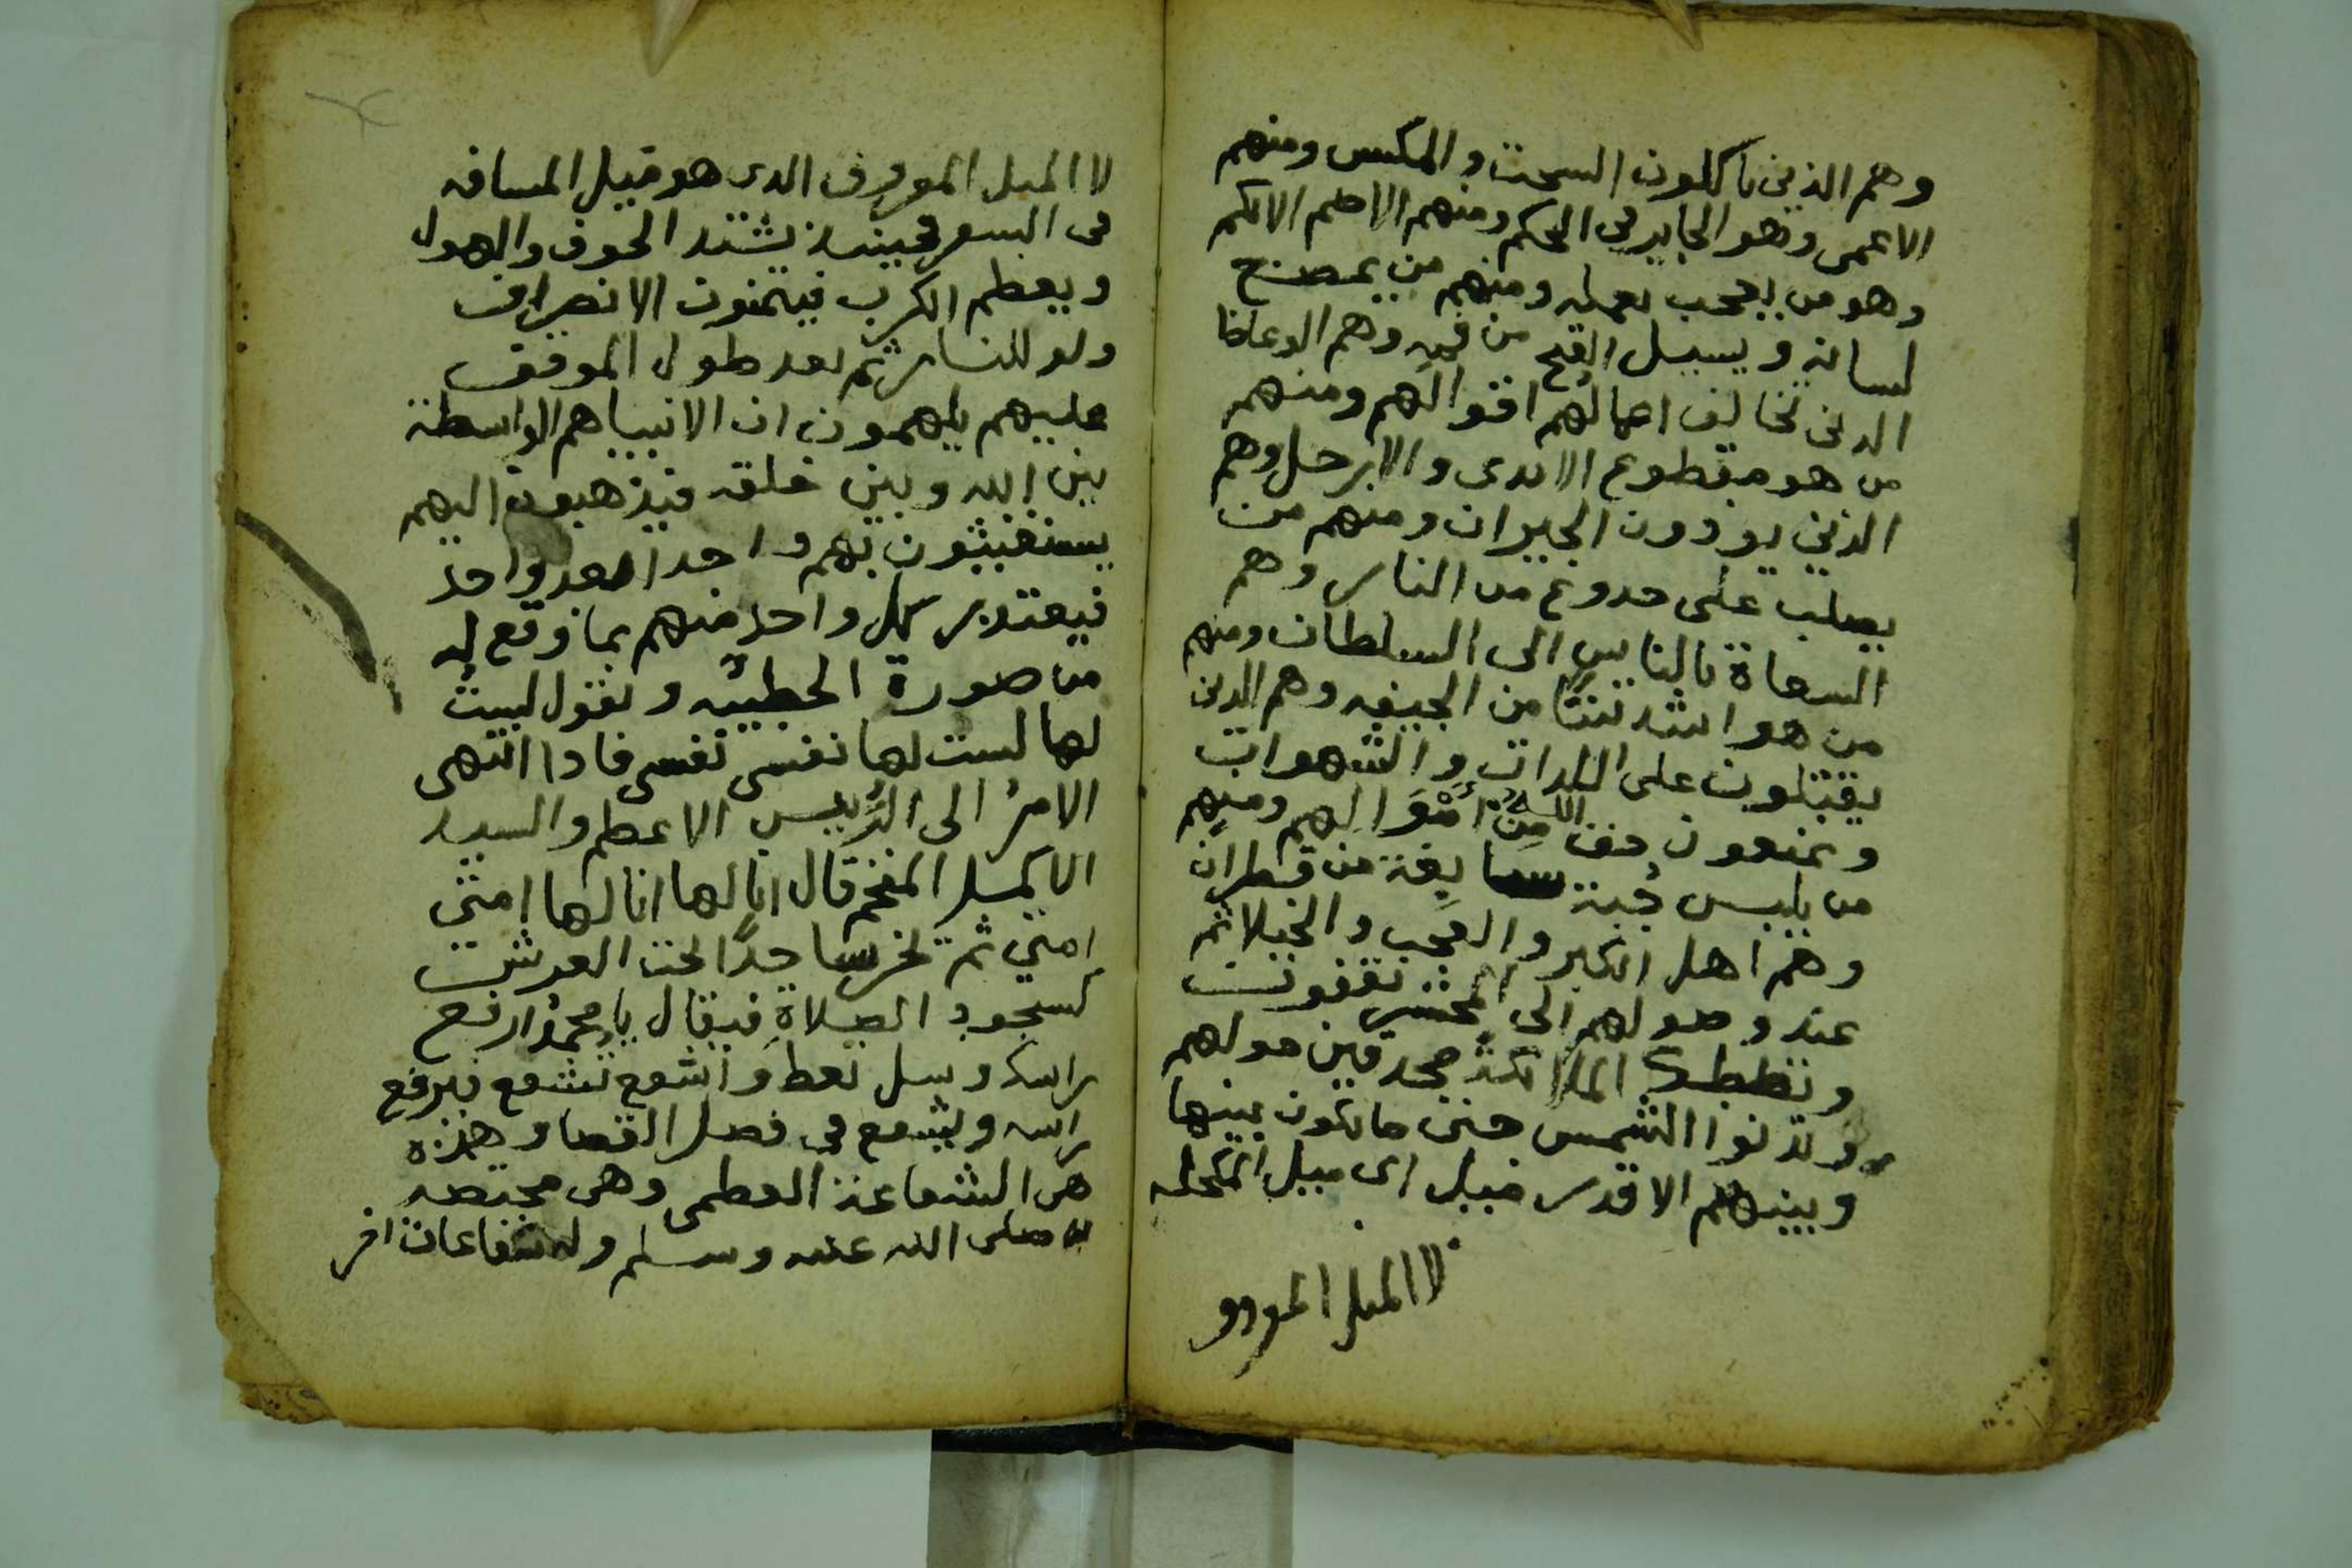 وهم الذين ياكلون السحت والمكس ومنهم
الاعمى وهو الجاير في الحكم ومنهم الاصم الابكم
وهو من يعجب بعمله ومنهم من يمضغ
لسانه ويسيل القيح من فيه وهم الوعاظ
الدين تخالف اعمالهم اقوالهم ومنهم
من هو مقطوع الايدى والارجل وهم
الذين يوذون الجيران ومنهم من
يصلب على جدوع من النار وهم
السعاة بالناس الى السلطان ومنهم
من هو اشد نتنًا من الجيفه وهم الدين
يقبلون على اللدات والشهوات
ويمنعون حق الله من اموالهم ومنهم
من يلبس جبة سابغة من قطران
وهم اهل الكبر والعجب والخيلا ثم
عند وصولهم الى المحشر يقفون
وتظلك الملائكة محدقين حولهم
وتدنوا الشمس حتى ما يكون بينها
وبينهم الا قدر ميل اى ميل المكحله
لا الميل المعروف
لا الميل المعروف الدى هو قبيل المسافه
فى السفر فحينيذ يشتد الخوف والهول
ويعظم الكرب فيتمنون الانصراف
ولو للنار ثم بعد طول الموقف
عليهم يلهمون ان الانبيا هم الواسطة
بين الله وبين خلقه فيذهبون اليهم
يستغيثون بهم واحدا بعد واحد
فيعتدر كل واحد منهم بما وقع له
من صورة الخطيئه ويقول لست
لها لست لها نفسى نفسى فادا انتهى
الامر الى الرييس الاعظم والسيد
الاكمل المفخم قال انا لها انا لها امتي
امتي ثم يخر ساجدًا تحت العرش
كسجود الصلاة فيقال يا محمد ارفع
راسك وسل تعط واشفع تشفع فيرفع
راسه ويشفع في فصل القضا وهذه
هى الشفاعة العظمى وهى مختصه
به صلى الله عليه وسلم وله شفاعات اخر